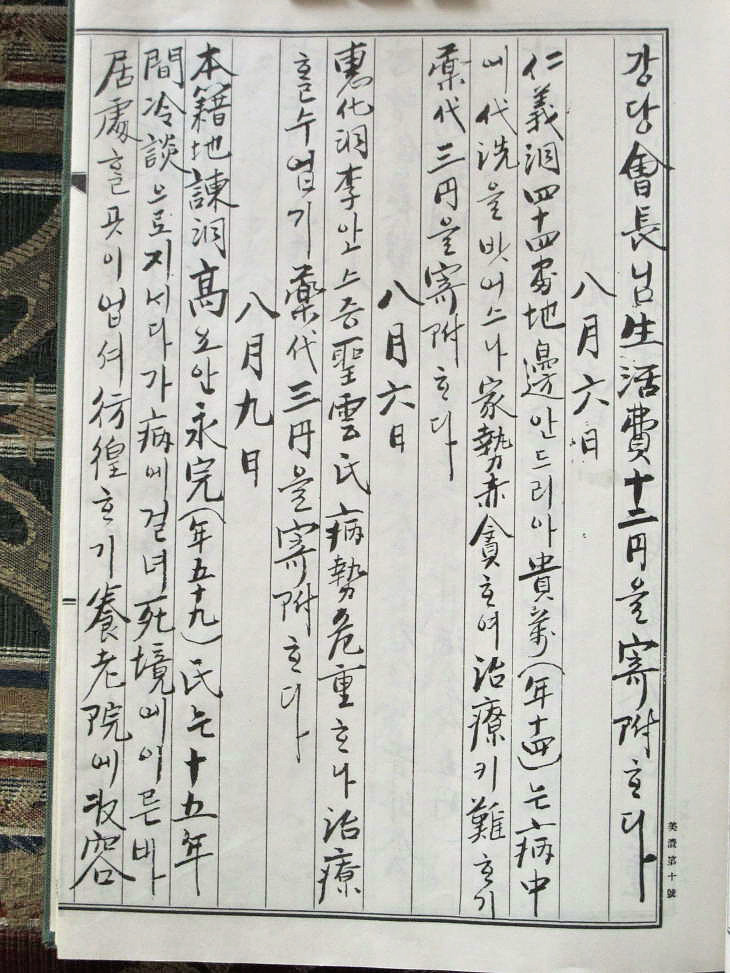 강당會長님生活費十二円을寄附하다
八月六日
仁義洞四十四番地邊안드리아貴萬(年十四)는病中
에代洗을밧어스나家勢赤貧하여治療키難하기
藥代三円을寄附하다
八月六日
惠化洞李안스증聖雲氏病勢危重하나治療
할수업기藥代三円을寄附하다
八月九日
本籍地諫洞高노안永完(年五十九)氏는十五年
間冷談으로지내다가病에걸녀死境에이른바
居處할곳이업셔彷徨하기養老院에收容
美濃第十號